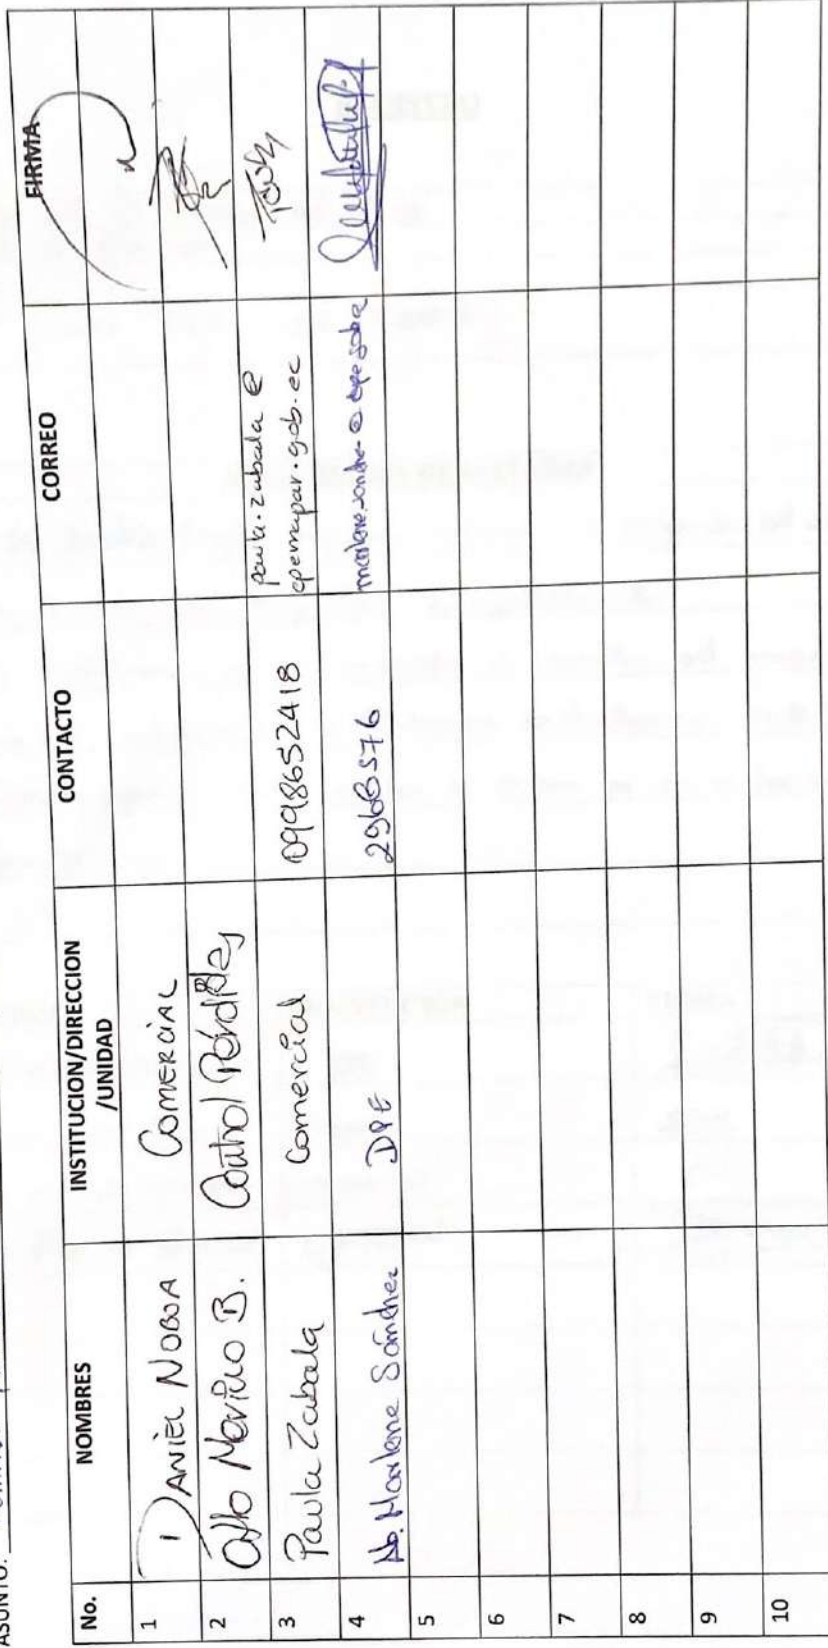 ASUNTO:
No. NOMBRES INSTITUCION/DIRECCION /UNIDAD CONTACTO CORREO FIRMA
1 DANIEL NOBOA COMERCIAL
2 Otto Merino B. Control Pérdidas
3 Paula Zabala Comercial 0998652418 paula.zabala@
epemapar.gob.ec
4 Ab. Marlene Sánchez DPE
5
6
7
8
9
10